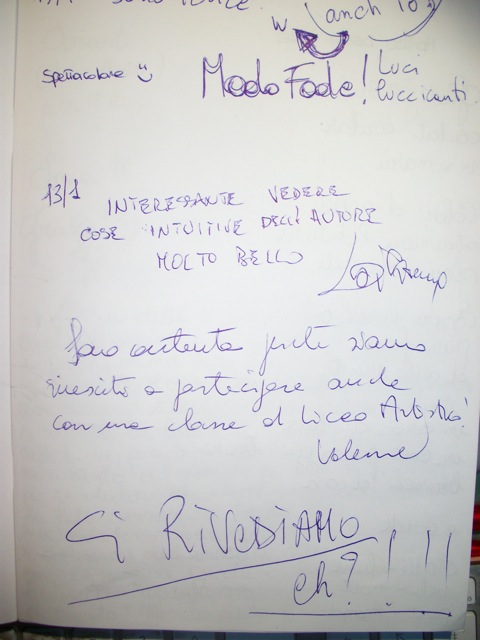 W anch'io
Spettacolare
Modo Fade! Luci
luccicanti
13/1 INTERESSANTE VEDERE
COSE INTUITIVE DELL'AUTORE
MOLTO BELLO
Sono contenta perché siamo
riusciti a partecipare anche
con una classe di Liceo Artistico!
Ci RIVEDIAMO
eh?!!!!